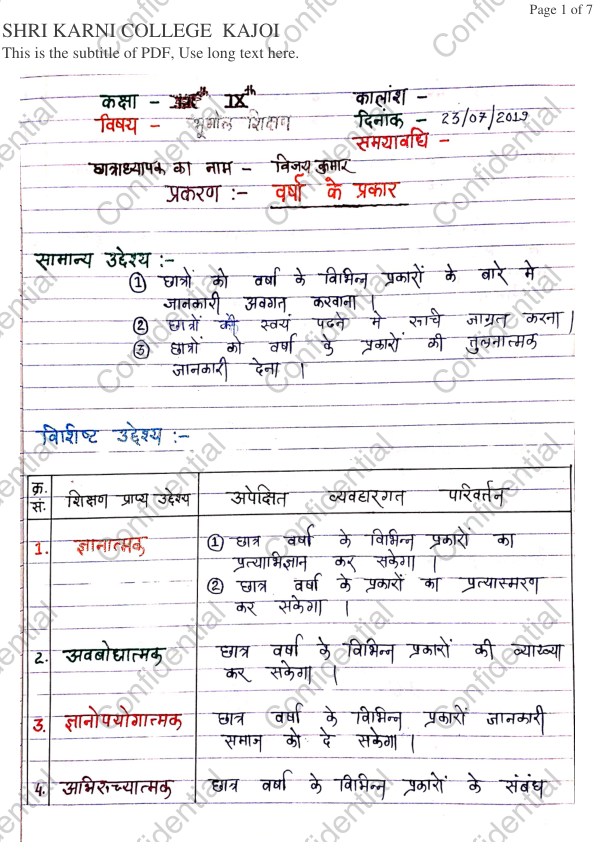 Page 1 of 7
SHRI KARNI COLLEGE KAJOI
This is the subtitle of PDF, Use long text here.
कक्षा - IXth
कालांश -
विषय - भूगोल शिक्षण
दिनांक - 23/07/2019
समयावधि -
छात्राध्यापक का नाम - विजय कुमार
प्रकरण :- वर्षा के प्रकार
सामान्य उद्देश्य :-
① छात्रों को वर्षा के विभिन्न प्रकारों के बारे मे
जानकारी अवगत करवाना ।
② छात्रों की स्वयं पढने मे रूचि जाग्रत करना ।
③ छात्रों को वर्षा के प्रकारों की तुलनात्मक
जानकारी देना ।
विशिष्ट उद्देश्य :-
क्र. सं. शिक्षण प्राप्य उद्देश्य अपेक्षित व्यवहारगत परिवर्तन
1. ज्ञानात्मक ① छात्र वर्षा के विभिन्न प्रकारों का
प्रत्याभिज्ञान कर सकेगा ।
② छात्र वर्षा के प्रकारों का प्रत्यास्मरण
कर सकेगा ।
2. अवबोधात्मक छात्र वर्षा के विभिन्न प्रकारों की व्याख्या
कर सकेगा ।
3. ज्ञानोपयोगात्मक छात्र वर्षा के विभिन्न प्रकारों जानकारी
समाज को दे सकेगा ।
4. अभिरुच्यात्मक छात्र वर्षा के विभिन्न प्रकारों के संबंध
Confidential